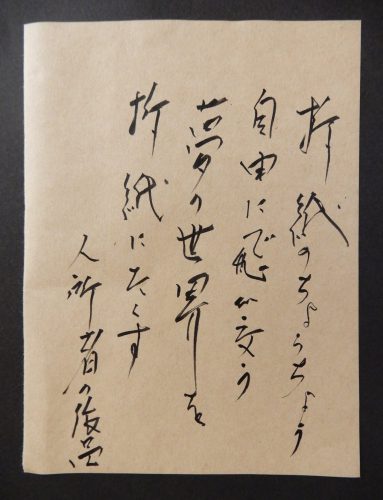 折紙のちょうちょう
自由に飛び交う
夢の世界を
折紙にたくす
入所者の作品